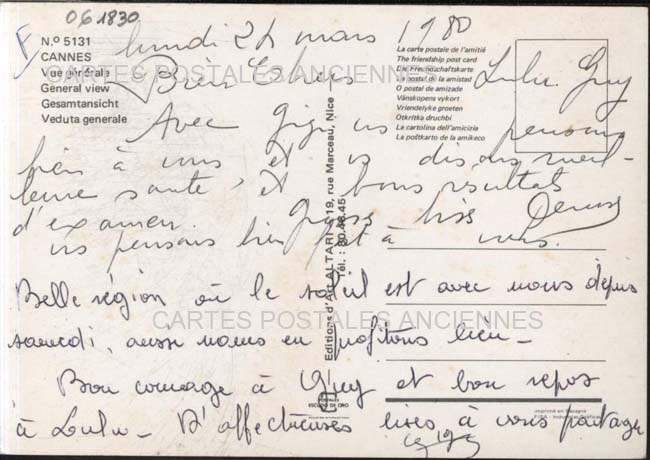 061830
N.º 5131
CANNES
Vue générale
General view
Gesamtansicht
Veduta generale
lundi 24 mars 1980
La carte postale de l'amitié
The friendship post card
Die Freundschaftskarte
La postal de la amistad
O postal de amizade
Vänskopens vykort
Vriendelyke groeten
Otkritka druchbi
La cartolina dell'amicizia
La poŝtkarto de la amikeco
CARTES POSTALES ANCIENNES
Bien Chers Lulu. Guy
Avec Gigi ns pensons
bien à vous et vs disons meil-
leure santé et bons résultats
d'examen. Grosse bise
ns pensons bien à vous.
Editions d'Art ALTARI - 19, rue Marceau, Nice
Tél. :
Belle région où le soleil est avec nous depuis
samedi, aussi nous en profitons bien -
CARTES POSTALES ANCIENNES
Bon courage à Guy et bon repos
à Lulu - D'affectueuses bises à vous partager
ESCUDO DE ORO